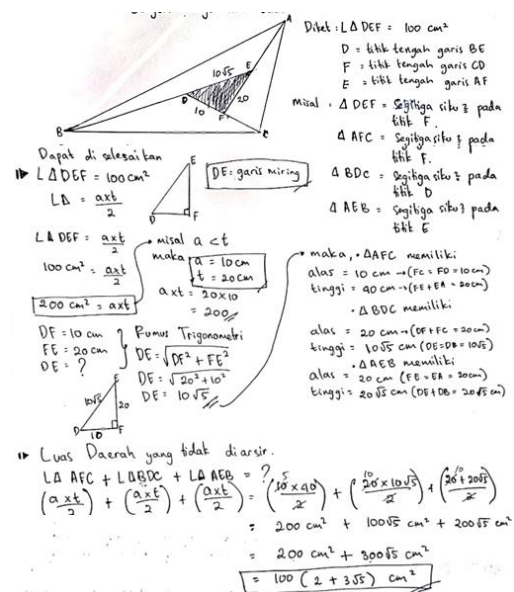 A
Diket : L Δ DEF = 100 cm²
D = titik tengah garis BE
F = titik tengah garis CD
E = titik tengah garis AF
10√5
E
D
20
10
F
B
C
Misal . Δ DEF = Segitiga siku² pada
titik F.
Δ AFC = Segitiga siku² pada
titik F.
Δ BDC = Segitiga siku² pada
titik D
Δ AEB = Segitiga siku² pada
titik E
Dapat di selesaikan
L Δ DEF = 100 cm²
LΔ = axt
2
E
D
F
DE = garis miring
LΔ DEF = axt
2
100 cm² = axt
2
200 cm² = axt
misal a < t
maka a = 10 cm
t = 20 cm
axt = 20x10
= 200
DF = 10 cm
FE = 20 cm
DE = ?
Rumus Trigonometri
DE = √DF² + FE²
DE = √20² + 10²
DE = 10√5
E
10√5
20
D
10
F
maka, • ΔAFC memiliki
alas = 10 cm → (FC = FD = 10 cm)
tinggi = 40 cm → (FE + EA = 20cm)
• ΔBDC memiliki
alas = 20 cm → (DF + FC = 20 cm)
tinggi = 10√5 cm (DE = DB = 10√5)
• ΔAEB memiliki
alas = 20 cm (FE = EA = 20cm)
tinggi = 20√5 cm (DE + DB = 20√5 cm)
Luas Daerah yang tidak diarsir.
LΔ AFC + LΔBDC + LΔ AEB = ?
(axt/2) + (axt/2) + (axt/2) = (10 x 40/2) + (20 x 10√5/2) + (20 + 20√5/2)
= 200 cm² + 100√5 cm² + 200√5 cm²
= 200 cm² + 300√5 cm²
= 100 (2 + 3√5) cm²